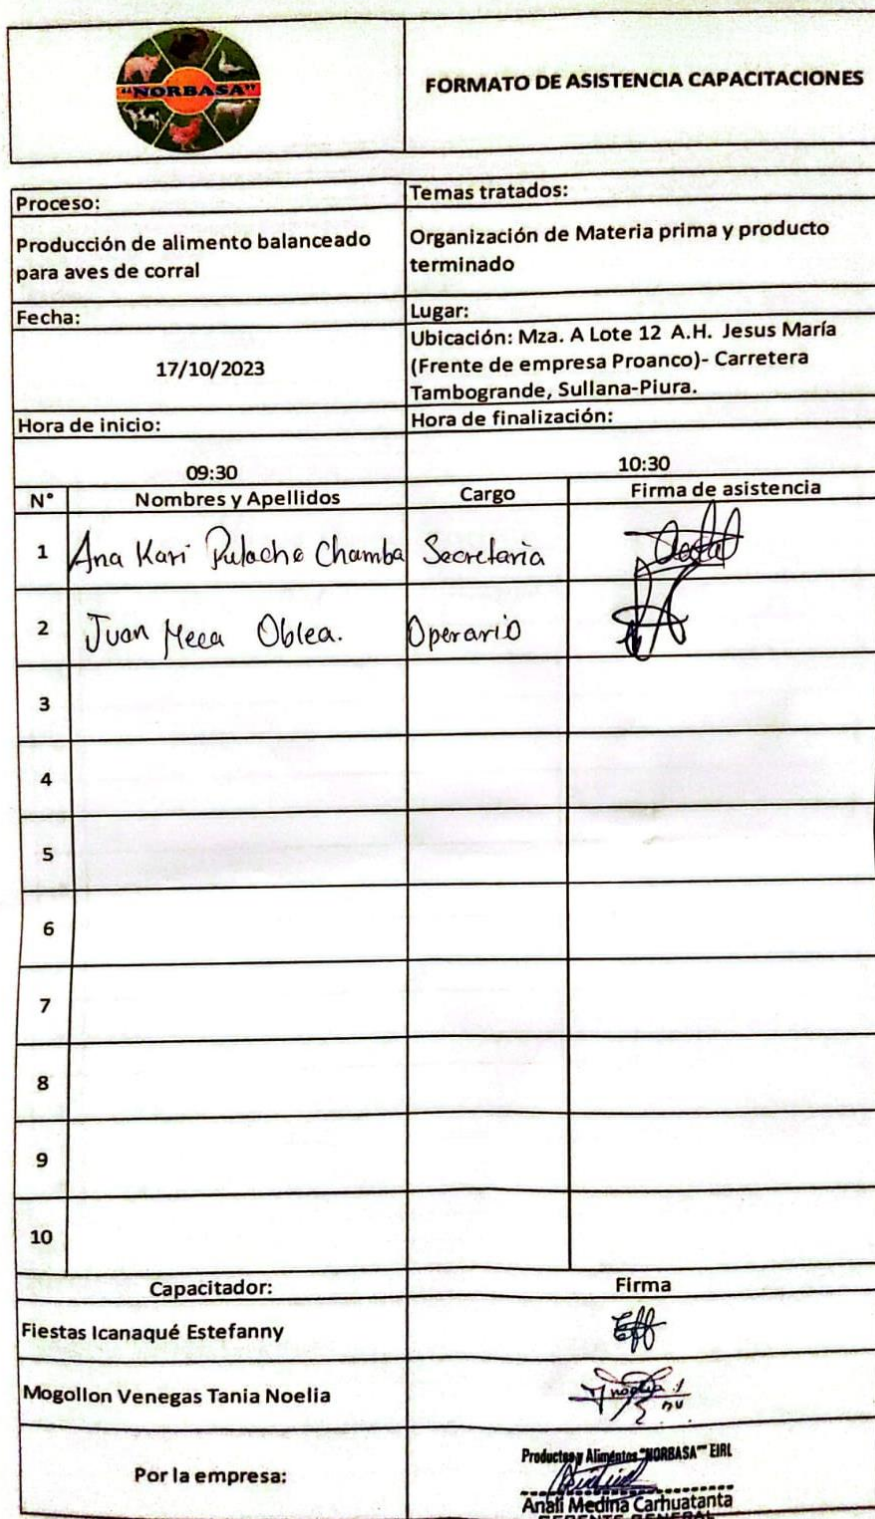 "NORBASA"
FORMATO DE ASISTENCIA CAPACITACIONES
Proceso:
Temas tratados:
Producción de alimento balanceado
para aves de corral
Organización de Materia prima y producto
terminado
Fecha:
Lugar:
17/10/2023
Ubicación: Mza. A Lote 12 A.H. Jesus María
(Frente de empresa Proanco)- Carretera
Tambogrande, Sullana-Piura.
Hora de inicio:
Hora de finalización:
09:30
10:30
N° Nombres y Apellidos Cargo Firma de asistencia
1 Ana Kari Pulache Chamba Secretaria
2 Juan Meca Oblea. Operario
3
4
5
6
7
8
9
10
Capacitador: Firma
Fiestas Icanaqué Estefanny Eff
Mogollon Venegas Tania Noelia
Por la empresa:
Productos y Alimentos "NORBASA" EIRL
Analí Medina Carhuatanta
GERENTE GENERAL